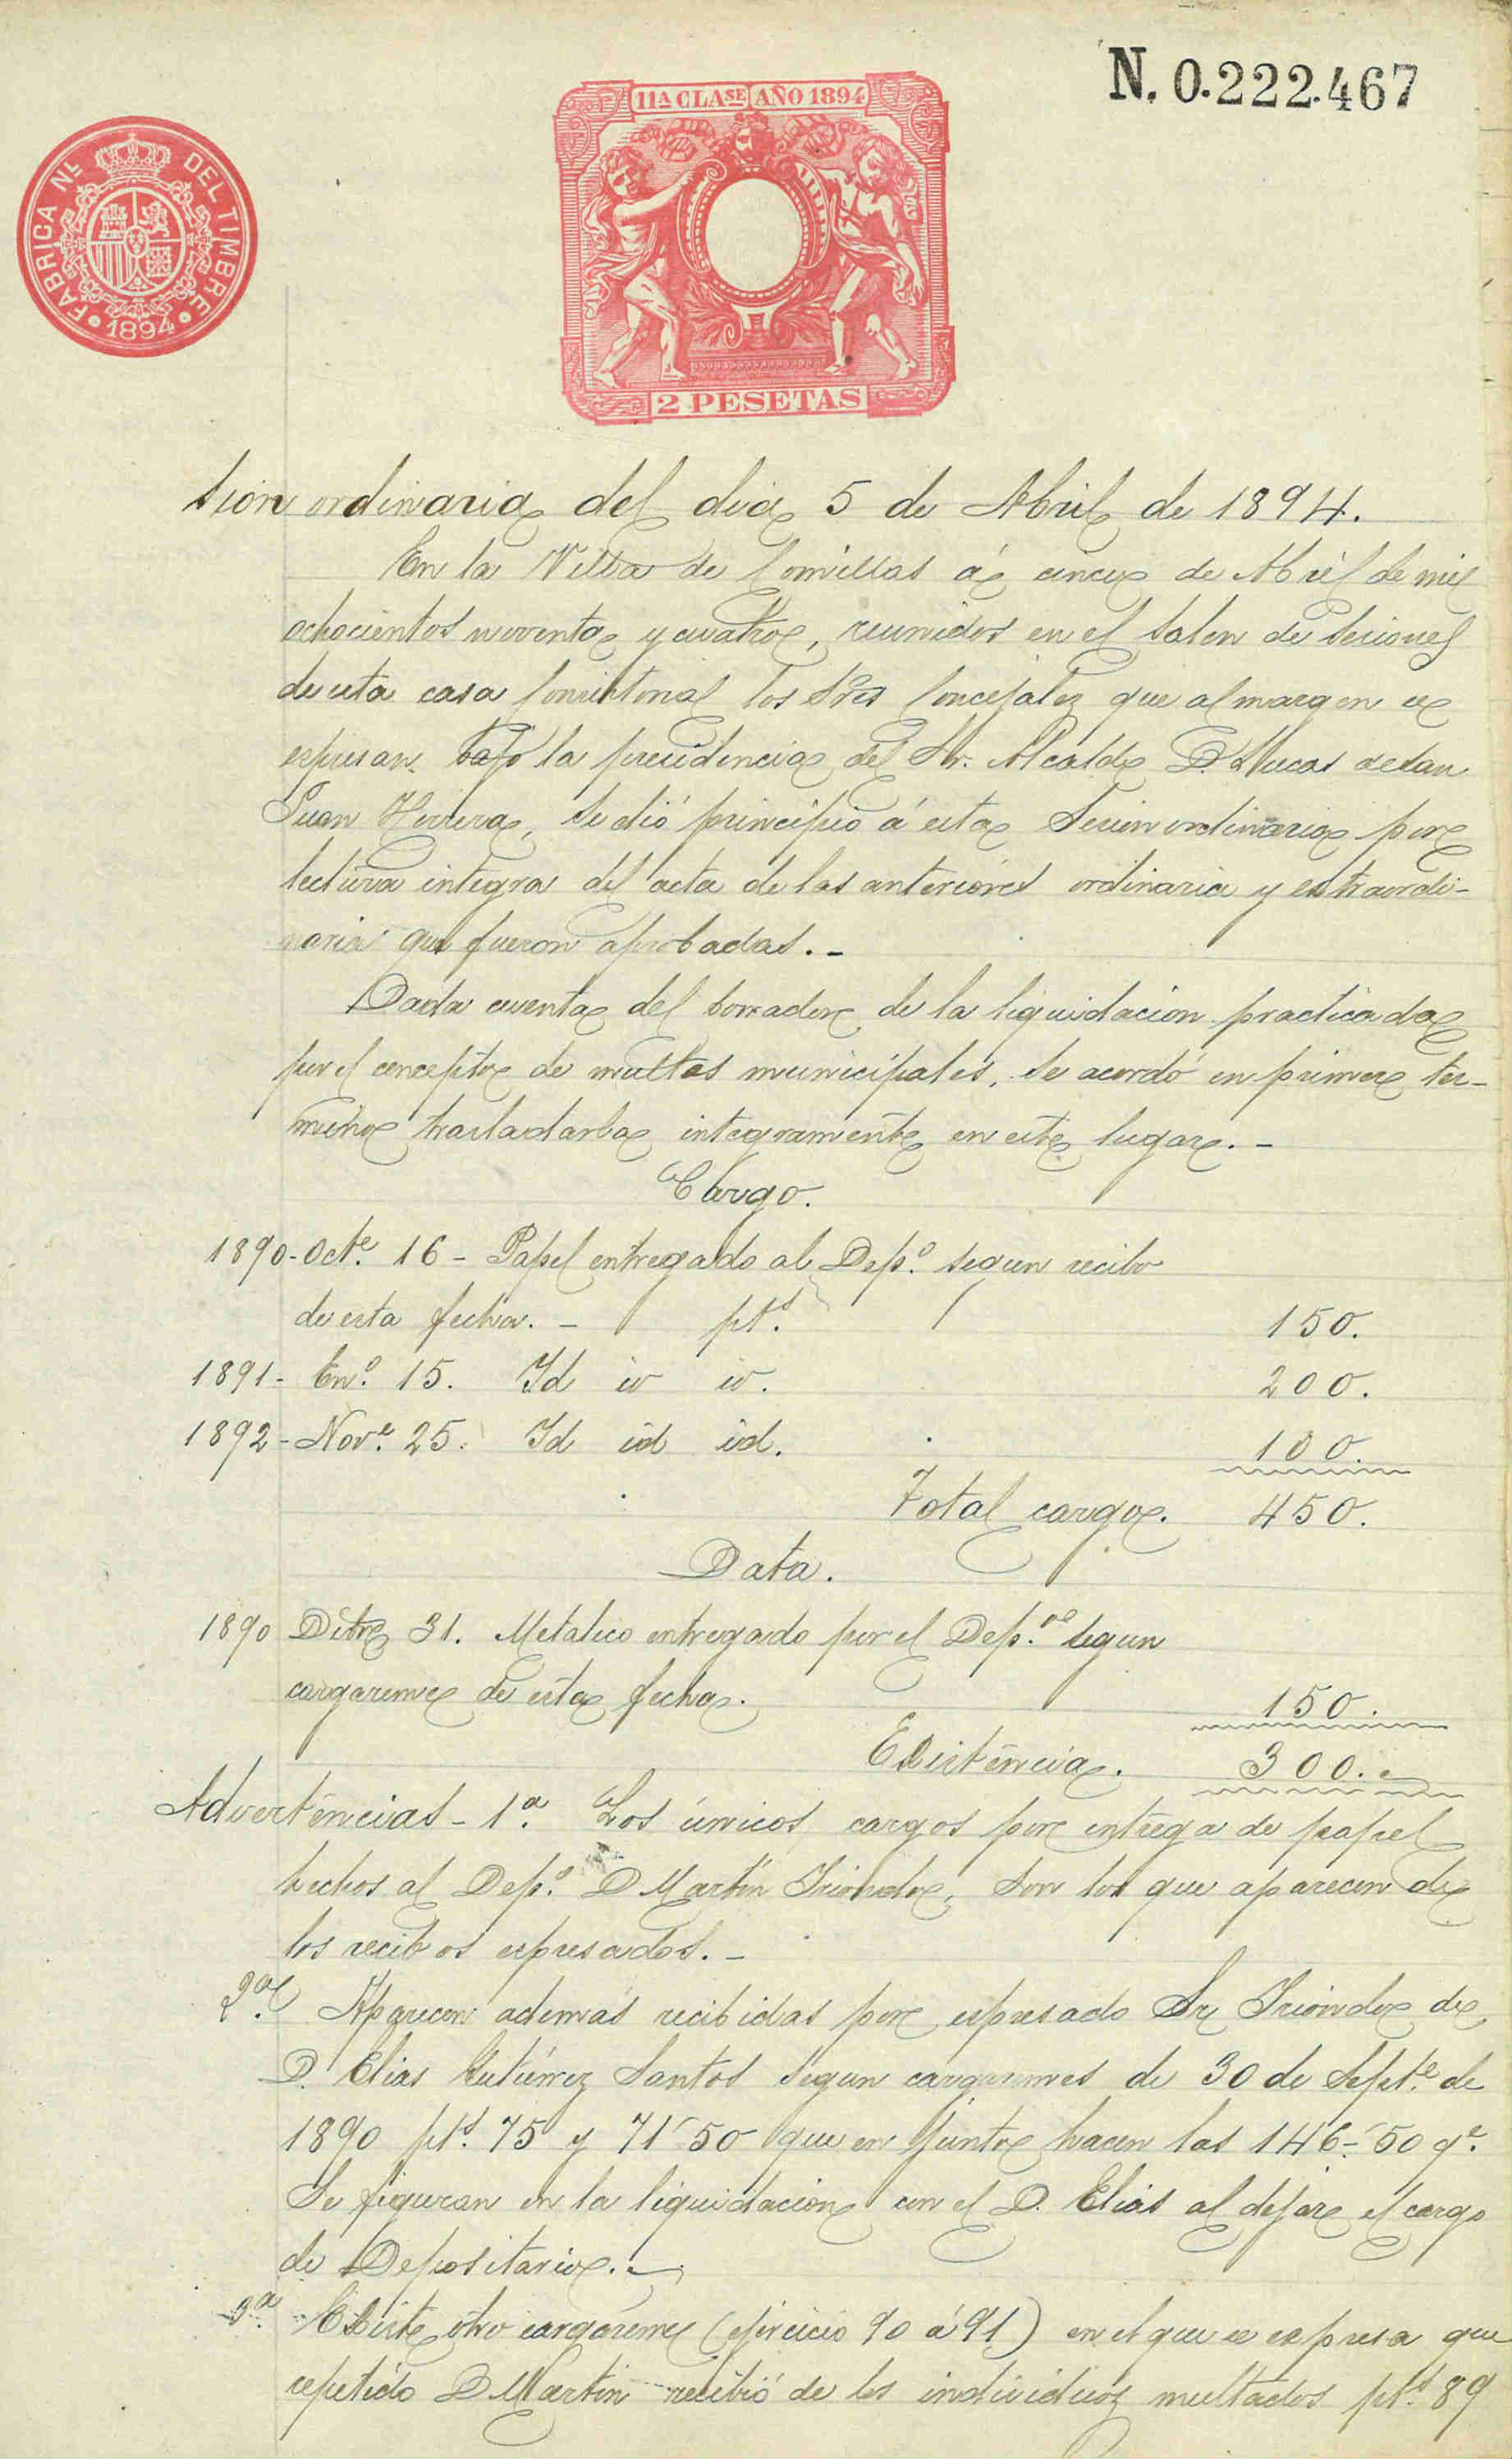 N. 0.222.467
11A CLASE AÑO 1894
FABRICA NL DEL TIMBRE
1894
2 PESETAS
sion ordinaria del dia 5 de Abril de 1894.
En la Villa de Comillas á cinco de Abril de mil
ochocientos noventa y cuatro, reunidos en el Salon de Sesiones
de esta casa Consistorial los Sres Concejales que al margen se
espresan bajo la presidencia del Sr. Alcalde D. Lucas de San
Juan Herrera, se dió principio á esta Sesion ordinaria por
lectura integra del acta de las anteriores ordinaria y estraordi-
naria que fueron aprobadas. -
Dada cuenta del borrador de la liquidacion practicada
por el concepto de multas municipales, se acordó en primer ter-
mino trasladarla integramente en este lugar. -
Cargo.
1890 - Octe. 16 - Papel entregado al Depo. segun recibo
de esta fecha. - pts. 150.
1891 - Eno. 15. Id id id. 200.
1892 - Nove. 25. Id id id. 100.
Total cargo. 450.
Data.
1890 Dibre 31. Metalico entregado por el Depo. segun
cargareme de esta fecha. 150.
Existencia. 300. -
Advertencias - 1a. Los únicos cargos por entrega de papel
hechos al Depo. D Martin Iriondo, son los que aparecen de
los recibos espresados. -
2a. Aparecen además recibidas por espresado Sr Iriondo de
D. Elias Gutiérrez Santos segun cargaremes de 30 de Septe. de
1890 pts. 75 y 71'50 que en junto hacen las 146'50 qe.
se figuran en la liquidacion con el D. Elias al dejar el cargo
de Depositario. -
3a. Existe otro cargareme (ejercicio 90 á 91) en el que se expresa que
repetido D Martin recibió de los individuos multados pts. 89